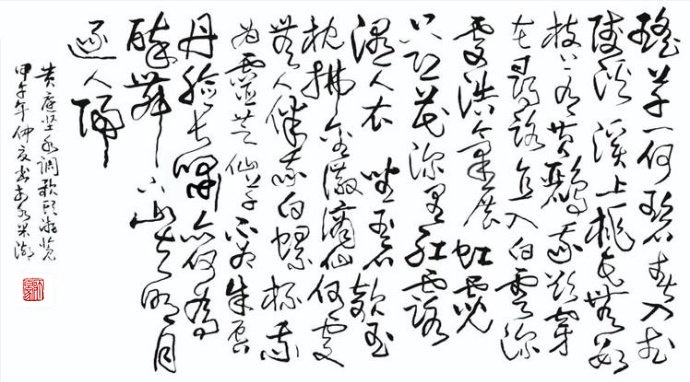 瑶草一何碧春入武
陵溪溪上桃花無數
枝上有黄鸝我欲穿
花尋路直入白雲深
處浩氣展虹霓
只恐花深里紅露
濕人衣坐玉石欹玉
枕拂金徽謫仙何處
無人伴我白螺杯我
为靈芝仙草不为朱唇
丹脸长嘯亦何为
醉舞下山去明月
逐人歸
黄庭坚水调歌头游览
甲午年仲夏书